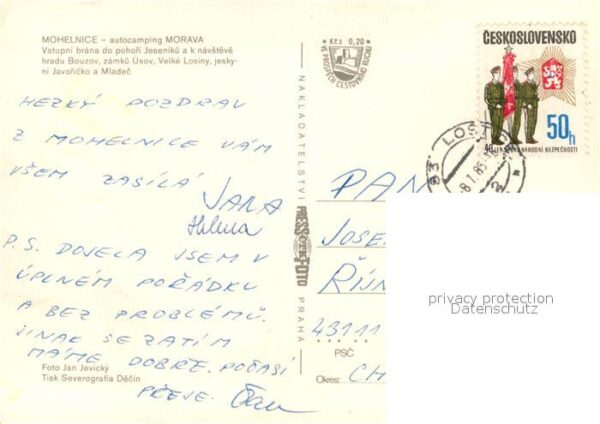 MOHELNICE – autocamping MORAVA
Vstupní brána do pohoří Jeseníků a k návštěvě
hradu Bouzov, zámků Úsov, Velké Losiny, jesky-
ní Javoříčko a Mladeč
HEZKÝ POZDRAV
Z MOHELNICE VÁM
VŠEM ZASÍLÁ
JANA
Helena
P.S. DOJELA JSEM V
ÚPLNÉM POŘÁDKU
A BEZ PROBLÉMŮ.
JINAK SE ZATÍM
MÁME DOBŘE. POČASÍ
PŘEJE.
Foto Jan Jevický
Tisk Severografia Děčín
NAKLADATELSTVÍ
PRESSFOTO
PRAHA
Kčs 0,20
VE PROSPĚCH CESTOVNÍHO RUCHU
ČESKOSLOVENSKO
50h
40 LET SBORU NÁRODNÍ BEZPEČNOSTI
LOŠTICE
PAN
JOSE
ŘÍJN
431 11
PSČ
Okres: CH
privacy protection
Datenschutz